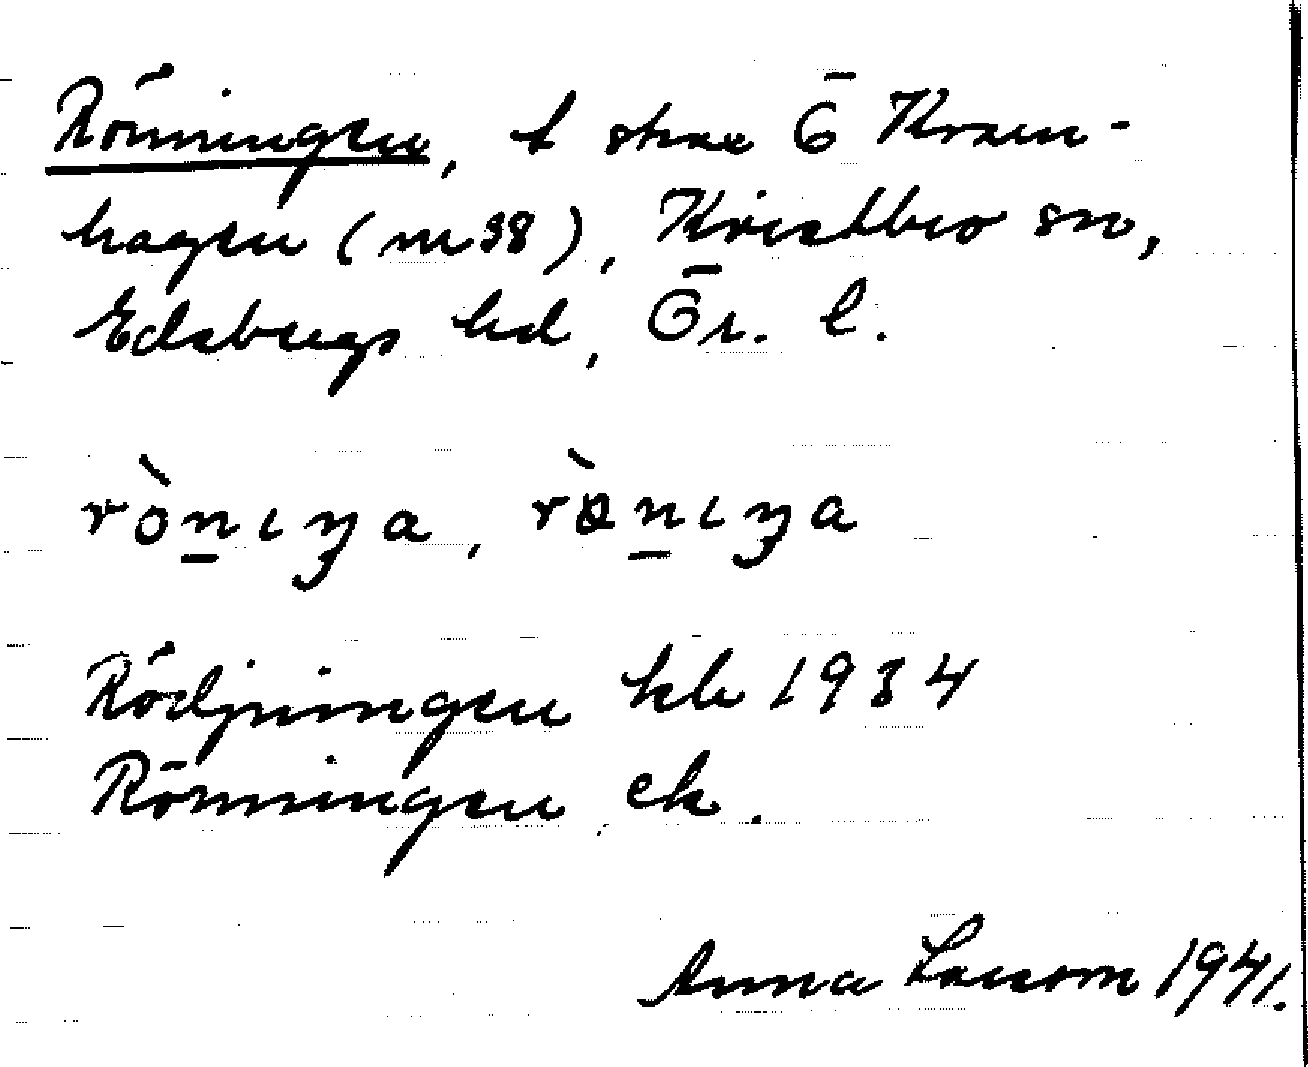 Rönningen, t strax Ö Kram-
hagen (m 38), Kvistbro sn,
Edsbergs hd, Ör. l.
rònıŋa,
Rödjningen kb 1934
Rönningen ek.
Anna Larsson 1941.